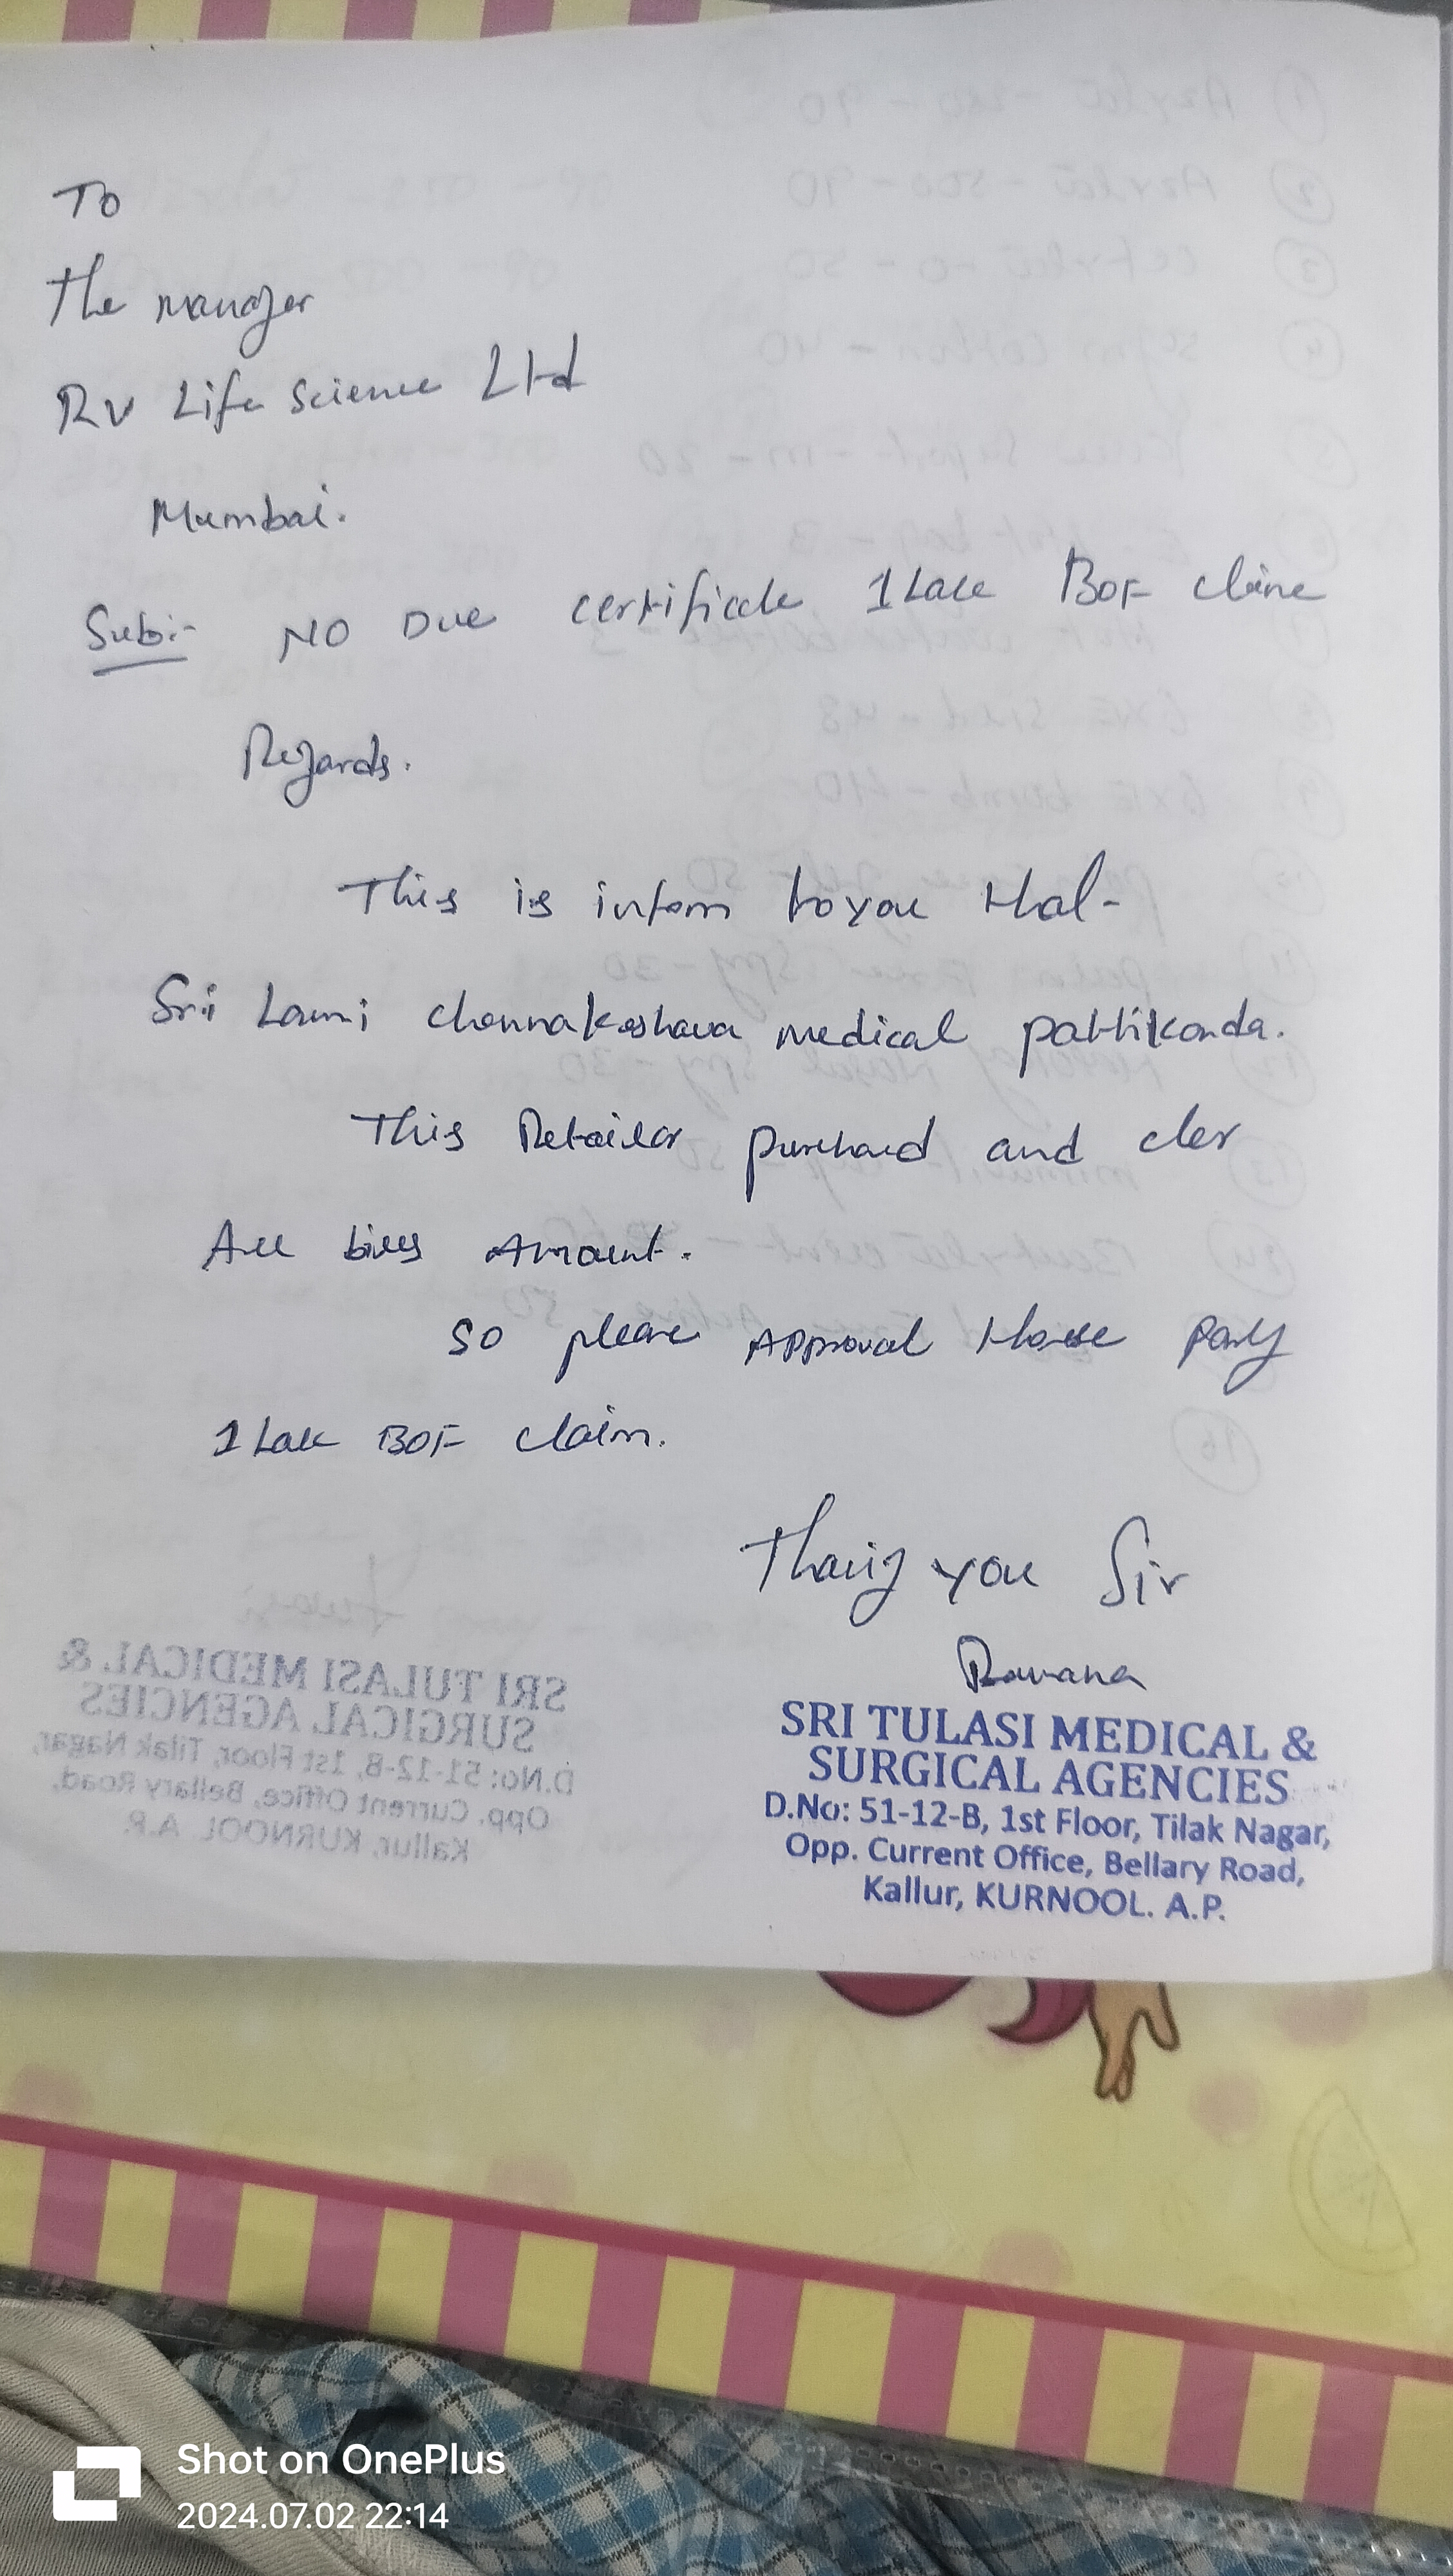 To
The manager
RV Life Science Ltd
Mumbai.
Sub:- NO Due certificate 1 Lack BOF cline
Regards.
This is inform to you that-
Sri Laxmi chennakeshava medical pattikonda.
This Retailer purchased and cler
All bills Amount.
So please Approval these party
1 Lack BOF claim.
Thanq you Sir
Ramana
SRI TULASI MEDICAL &
SURGICAL AGENCIES
D.No: 51-12-B, 1st Floor, Tilak Nagar,
Opp. Current Office, Bellary Road,
Kallur, KURNOOL. A.P.
Shot on OnePlus
2024.07.02 22:14